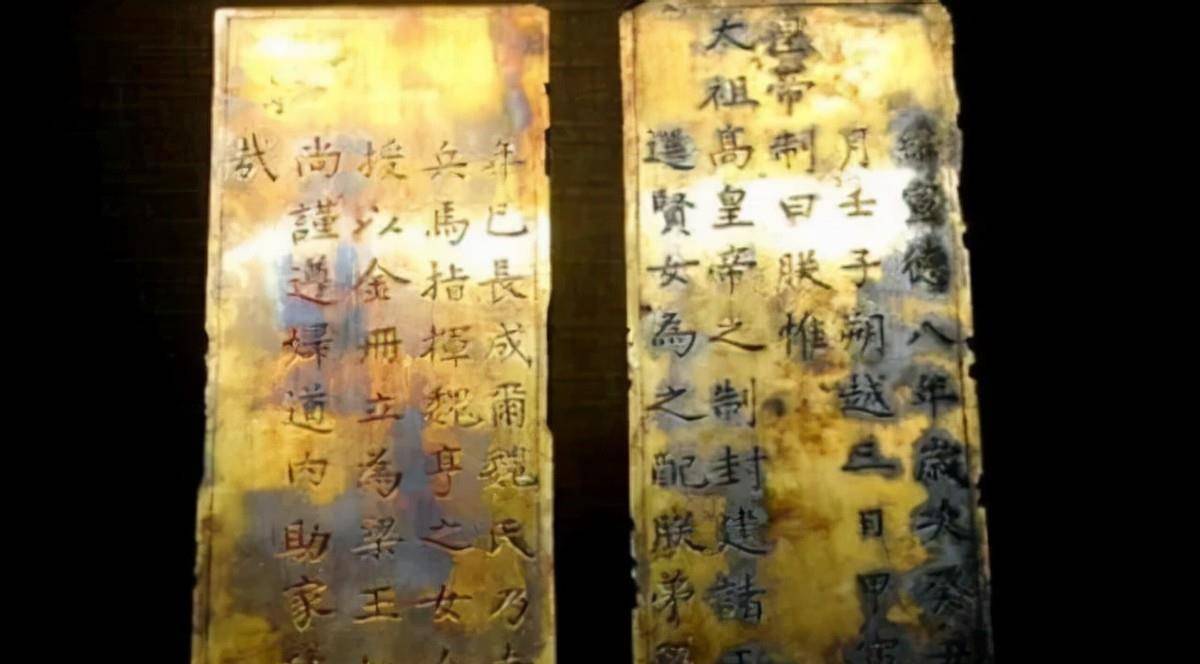 維宣德八年歲次癸丑
月壬子朔越三日甲寅
皇帝制曰朕惟
太祖高皇帝之制封建諸
選賢女為之配朕弟
年已長成爾魏氏乃
兵馬指揮魏亨之女
授以金冊立為梁王
尚謹遵婦道內助家
哉